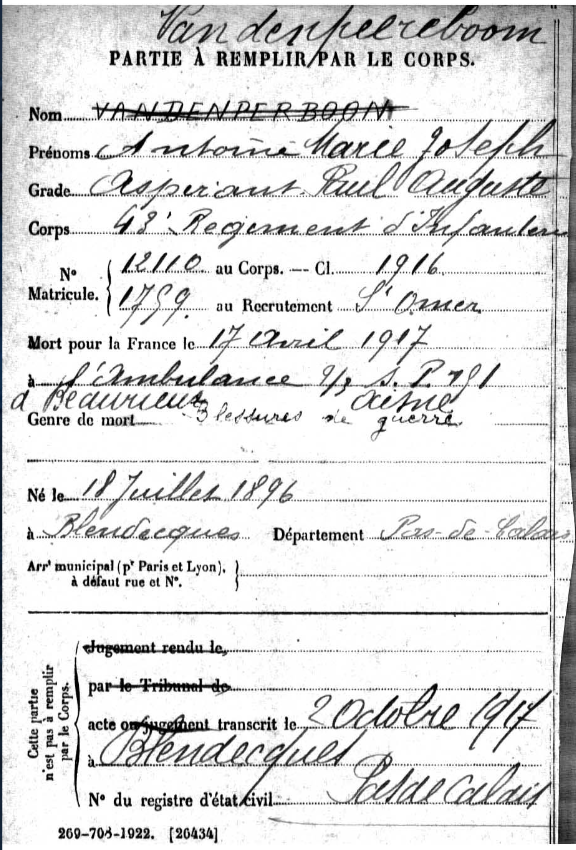 Vandenpeereboom
PARTIE À REMPLIR PAR LE CORPS.
Nom VANDENPERBOON
Prénoms Antoine Marie Joseph
Grade Aspirant Paul Auguste
Corps 43e Regiment d'Infanterie
N° Matricule. 12110 au Corps. — Cl. 1916
1759 au Recrutement St Omer
Mort pour la France le 17 Avril 1917
à l'Ambulance S. P. 191
à Beaurieux Aisne
Genre de mort Blessures de guerre
Né le 18 Juillet 1896
à Blendecques Département Pas-de-Calais
Arrt municipal (pr Paris et Lyon), à défaut rue et N°.
Cette partie n'est pas à remplir par le Corps.
Jugement rendu le,
par le Tribunal de
acte ou jugement transcrit le 2 Octobre 1917
à Blendecques
N° du registre d'état civil Pas de Calais
269-708-1922. [26434]